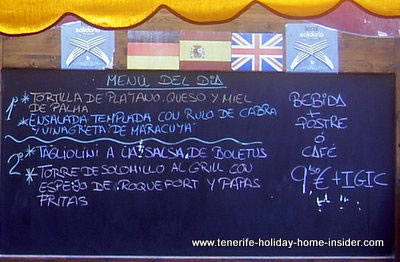 solidario
local
solidario
MENÚ DEL DÍA
1º * TORTILLA DE PLATANO, QUESO Y MIEL
DE PALMA
* ENSALADA TEMPLADA CON RULO DE CABRA
Y VINAGRETA DE MARACUYÁ
2º * TAGLIOLINI A LA SALSA DE BOLETUS
* TORRE DE SOLOMILLO AL GRILL CON
ESPEJO DE ROQUEFORT Y PAPAS
FRITAS
BEBIDA
+
POSTRE
Ó
CAFÉ
9,50 € + IGIC
www.tenerife-holiday-home-insider.com